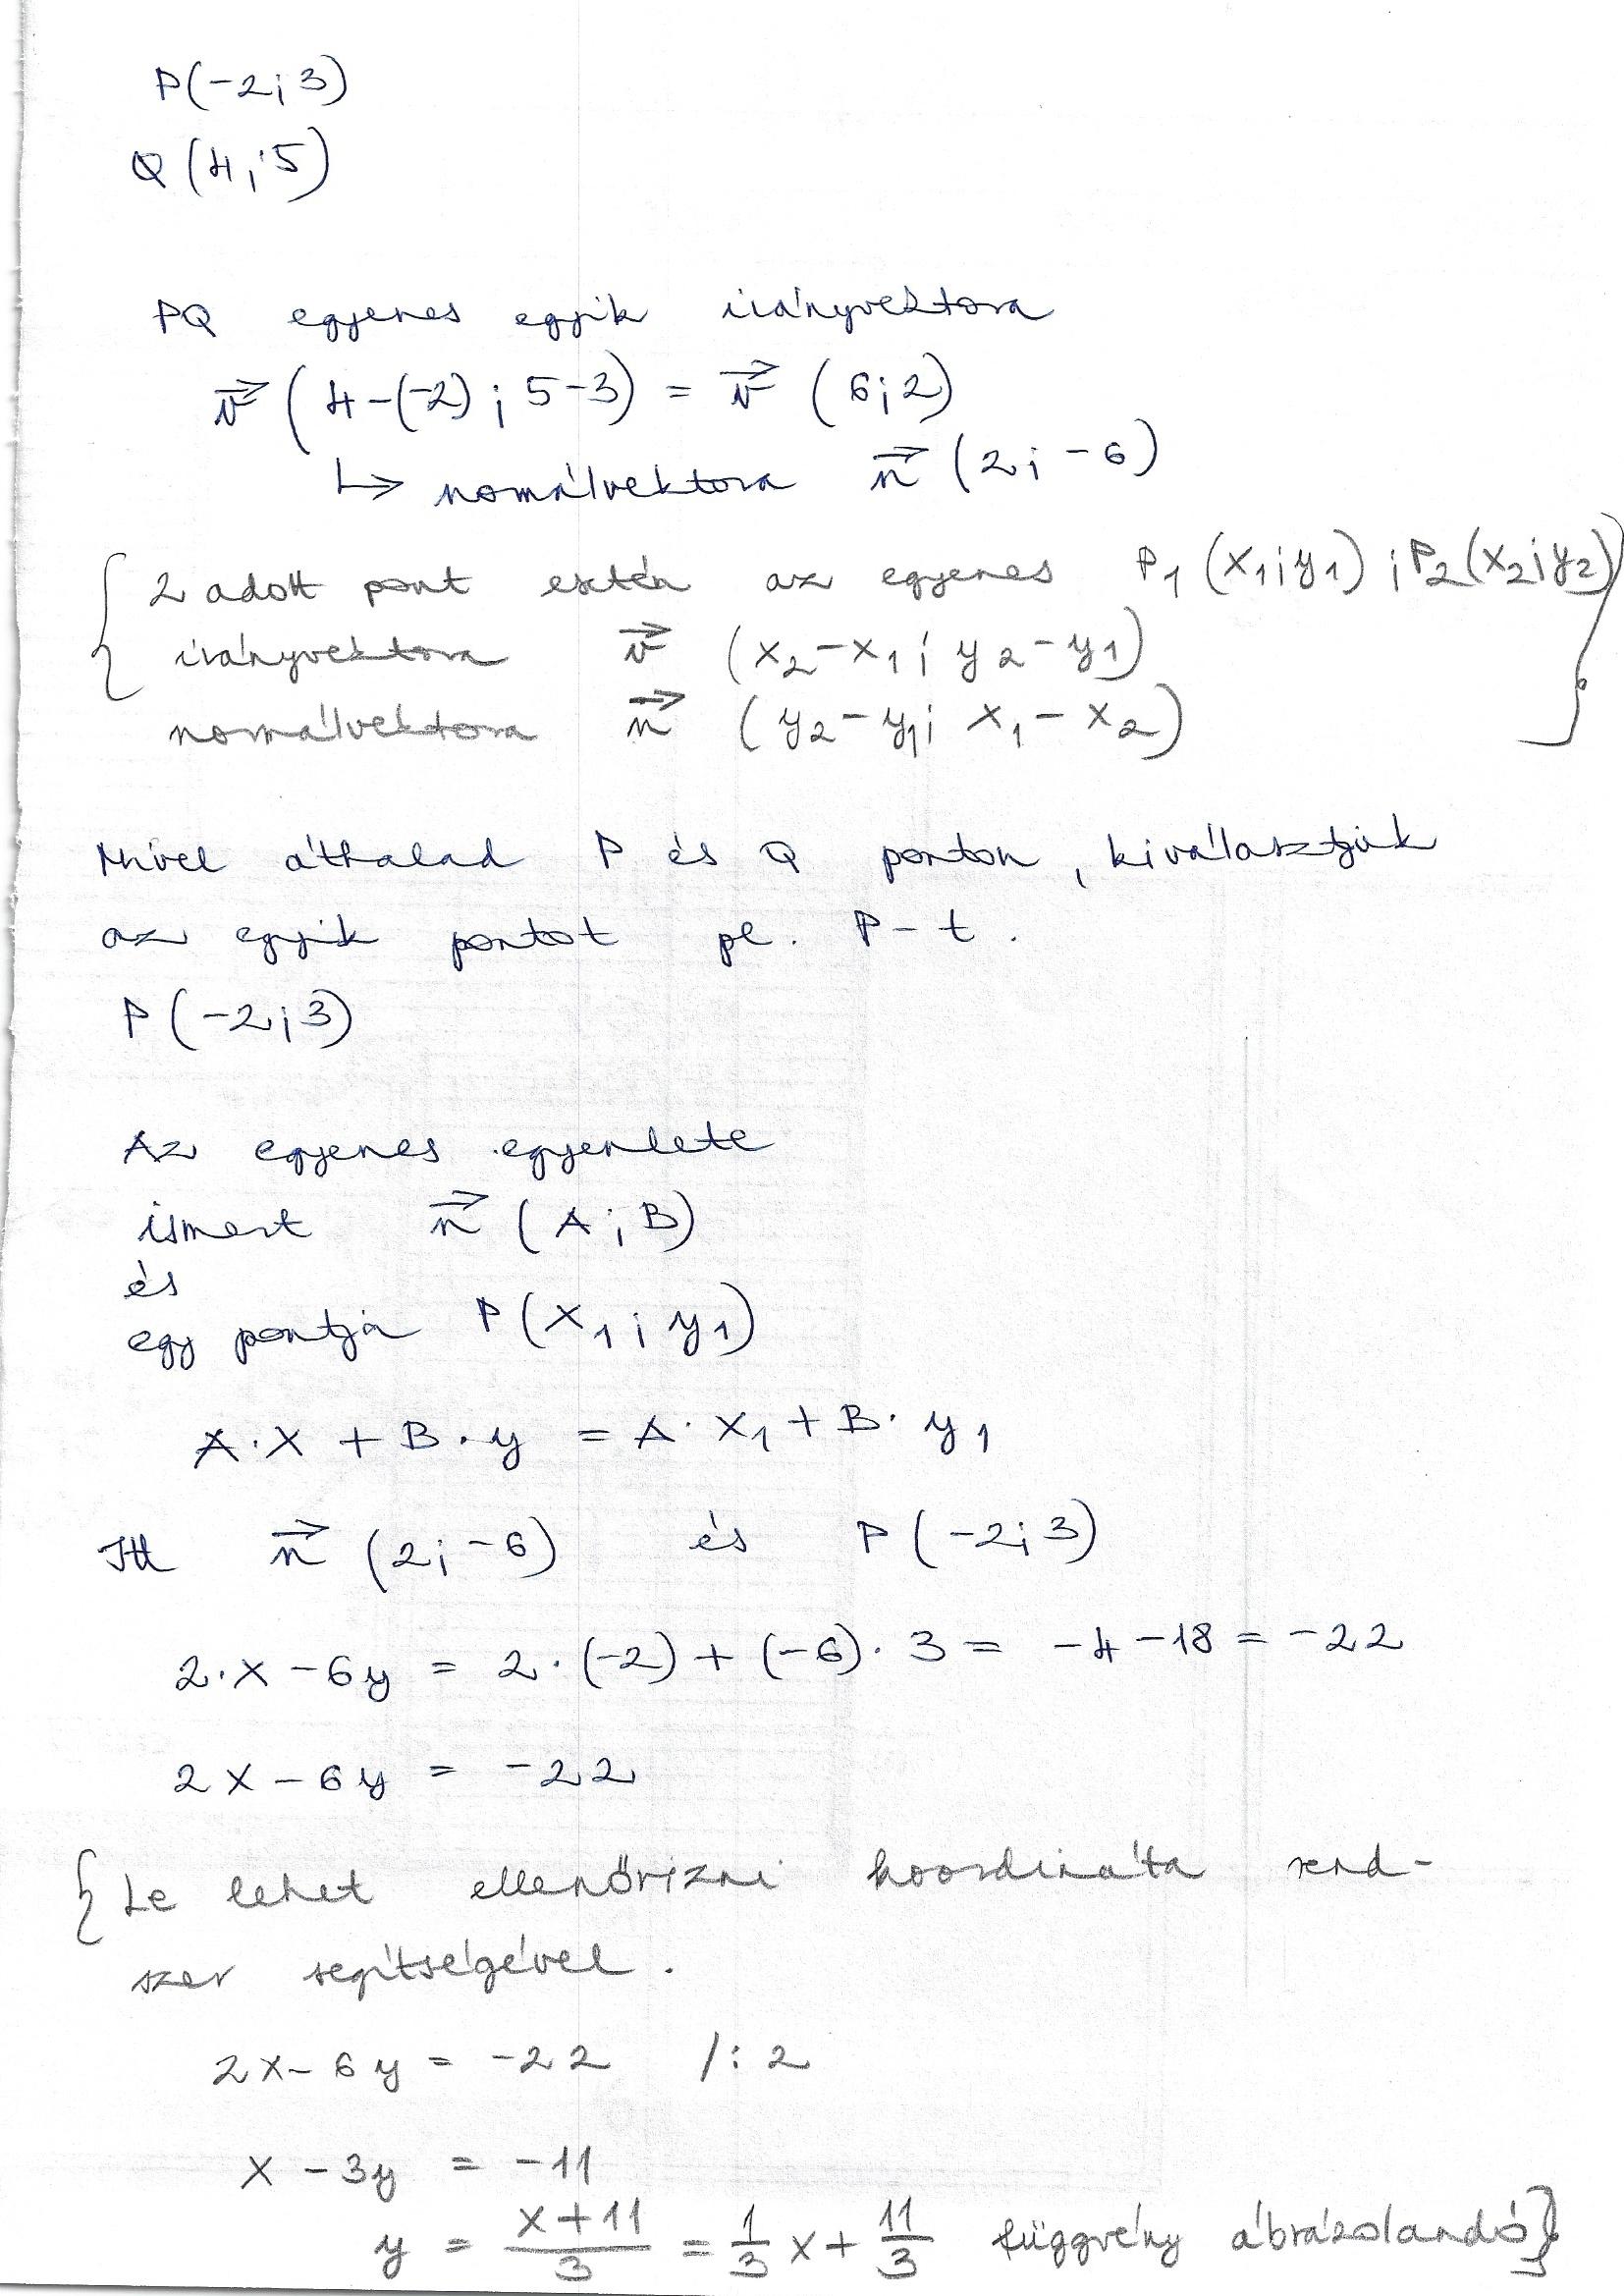 P(-2;3)
Q(4;5)
PQ egyenes egyik irányvektora
v⃗ (4-(-2);5-3) = v⃗ (6;2)
↳ normálvektora n⃗ (2;-6)
{ 2 adott pont estén az egyenes P₁(x₁;y₁);P₂(x₂;y₂)
irányvektora v⃗ (x₂-x₁; y₂-y₁)
normálvektora n⃗ (y₂-y₁; x₁-x₂) }
Mivel áthalad P és Q ponton, kiválasztjuk
az egyik pontot pl. P-t.
P(-2;3)
Az egyenes egyenlete
ismert n⃗ (A;B)
és
egy pontja P(x₁;y₁)
A·x + B·y = A·x₁ + B·y₁
Itt n⃗ (2;-6) és P(-2;3)
2·x - 6y = 2·(-2) + (-6)·3 = -4-18 = -22
2x - 6y = -22
{ Le lehet ellenőrizni koordináta rend-
szer segítségével.
2x - 6y = -22 /: 2
x - 3y = -11
y = (x+11)/3 = 1/3 x + 11/3 függvény ábrázolandó}